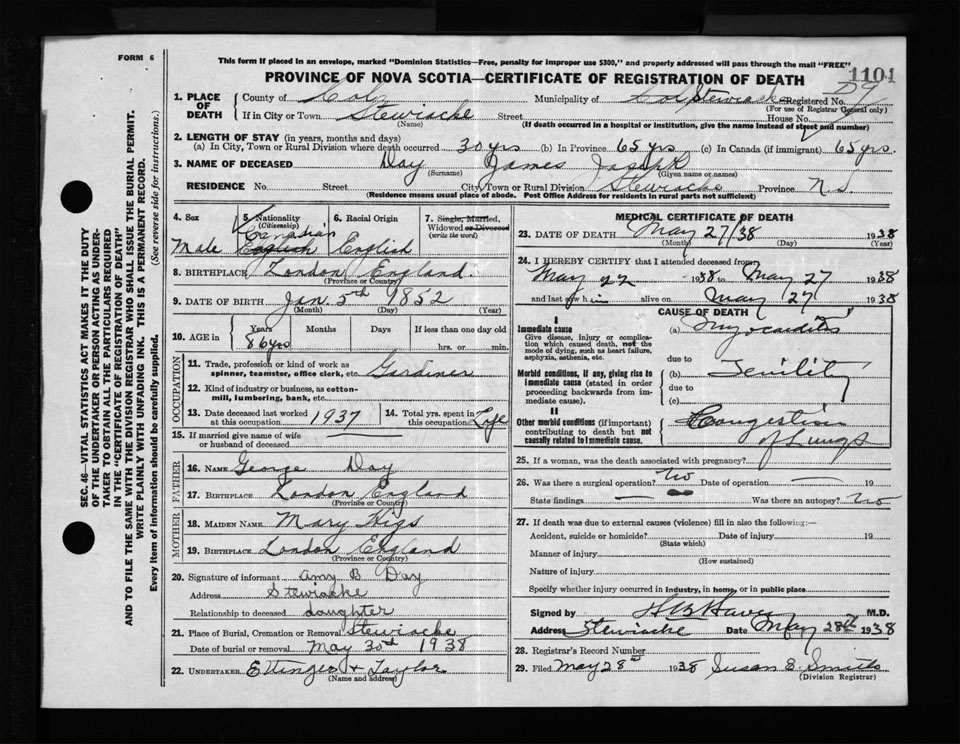 FORM 6
This form if placed in an envelope, marked "Dominion Statistics—Free, penalty for improper use $300," and properly addressed will pass through the mail "FREE"
PROVINCE OF NOVA SCOTIA—CERTIFICATE OF REGISTRATION OF DEATH
1104
D9
1. PLACE OF DEATH
County of Col. Municipality of Col Stewiacke Registered No.
(For use of Registrar General only)
If in City or Town Stewiacke Street House No.
(Name) (If death occurred in a hospital or institution, give the name instead of street and number)
2. LENGTH OF STAY (in years, months and days)
(a) In City, Town or Rural Division where death occurred 30 yrs (b) In Province 65 yrs (c) In Canada (if immigrant) 65 yrs.
3. NAME OF DECEASED Day James Joseph
(Surname) (Given name or names)
RESIDENCE No. Street City, Town or Rural Division Stewiacke Province N.S.
(Residence means usual place of abode. Post Office Address for residents in rural parts not sufficient)
4. Sex
5. Nationality (Citizenship)
6. Racial Origin
7. Single, Married, Widowed or Divorced (write the word)
Canadian
Male English English
8. BIRTHPLACE London England.
(Province or Country)
9. DATE OF BIRTH Jan. 5th 1852
(Month) (Day) (Year)
10. AGE in Years Months Days If less than one day old
86 yrs hrs. or min.
OCCUPATION
11. Trade, profession or kind of work as spinner, teamster, office clerk, etc. Gardiner
12. Kind of industry or business, as cotton-mill, lumbering, bank, etc.
13. Date deceased last worked at this occupation 1937
14. Total yrs. spent in this occupation Life
15. If married give name of wife or husband of deceased
FATHER
16. NAME George Day
17. BIRTHPLACE London England
(Province or Country)
MOTHER
18. MAIDEN NAME Mary Higs
19. BIRTHPLACE London England
(Province or Country)
20. Signature of informant Amy B. Day
Address Stewiacke
Relationship to deceased daughter
21. Place of Burial, Cremation or Removal Stewiacke
Date of burial or removal May 30th 1938
22. UNDERTAKER Ettinger + Taylor
(Name and address)
MEDICAL CERTIFICATE OF DEATH
23. DATE OF DEATH May 27/38 1938
(Month) (Day) (Year)
24. I HEREBY CERTIFY that I attended deceased from
May 22 1938 to May 27 1938
and last saw him alive on May 27 1938
CAUSE OF DEATH
I
Immediate cause
Give disease, injury or complication which caused death, not the mode of dying, such as heart failure, asphyxia, asthenia, etc.
(a) Myocarditis
due to
Morbid conditions, if any, giving rise to immediate cause (stated in order proceeding backwards from immediate cause).
(b) Senility
due to
(c)
II
Other morbid conditions (if important) contributing to death but not causally related to immediate cause.
Congestion of Lungs
25. If a woman, was the death associated with pregnancy?
26. Was there a surgical operation? No Date of operation — 19
State findings — Was there an autopsy? No
27. If death was due to external causes (violence) fill in also the following:—
Accident, suicide or homicide? Date of injury 19
(State which)
Manner of injury
(How sustained)
Nature of injury
Specify whether injury occurred in Industry, in home, or in public place
Signed by M.D.
Address Stewiacke Date May 28th 1938
28. Registrar's Record Number
29. Filed May 28th 1938 Susan E. Smith
(Division Registrar)
SEC. 46—VITAL STATISTICS ACT MAKES IT THE DUTY
OF THE UNDERTAKER OR PERSON ACTING AS UNDER-
TAKER TO OBTAIN ALL THE PARTICULARS REQUIRED
IN THE "CERTIFICATE OF REGISTRATION OF DEATH"
AND TO FILE THE SAME WITH THE DIVISION REGISTRAR WHO SHALL ISSUE THE BURIAL PERMIT.
WRITE PLAINLY WITH UNFADING INK. THIS IS A PERMANENT RECORD.
Every item of information should be carefully supplied. (See reverse side for instructions.)